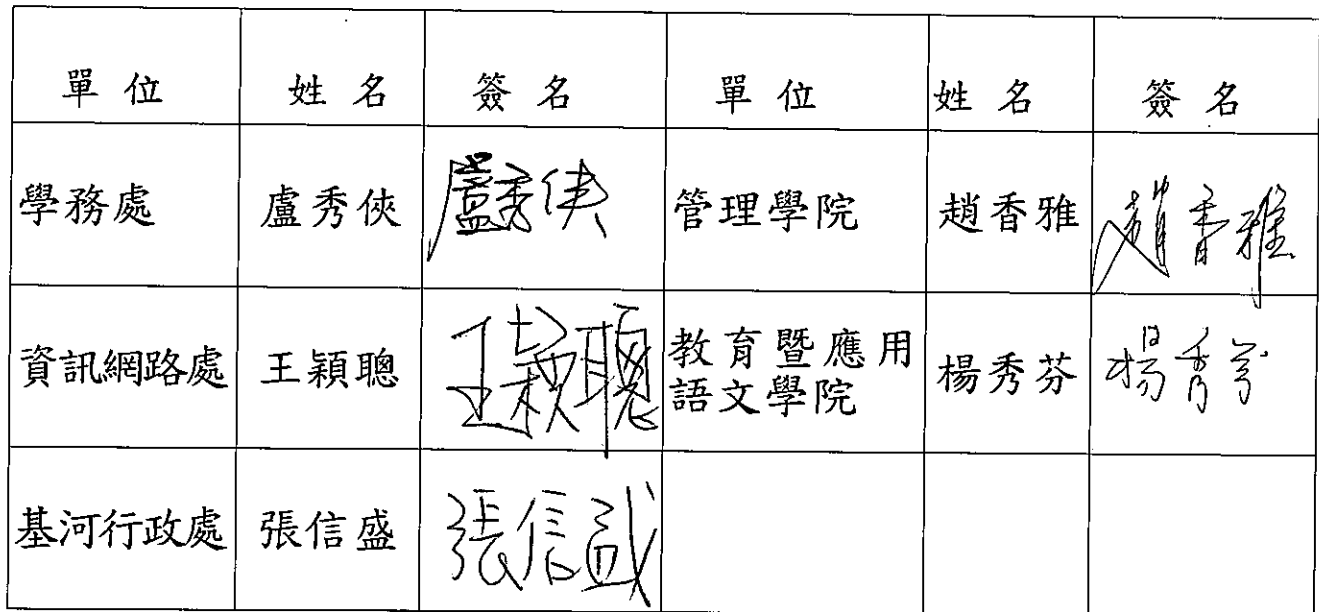 單位 姓名 簽名 單位 姓名 簽名
學務處 盧秀俠 盧秀俠 管理學院 趙香雅 趙香雅
資訊網路處 王穎聰 王穎聰 教育暨應用語文學院 楊秀芬 楊秀芬
基河行政處 張信盛 張信盛